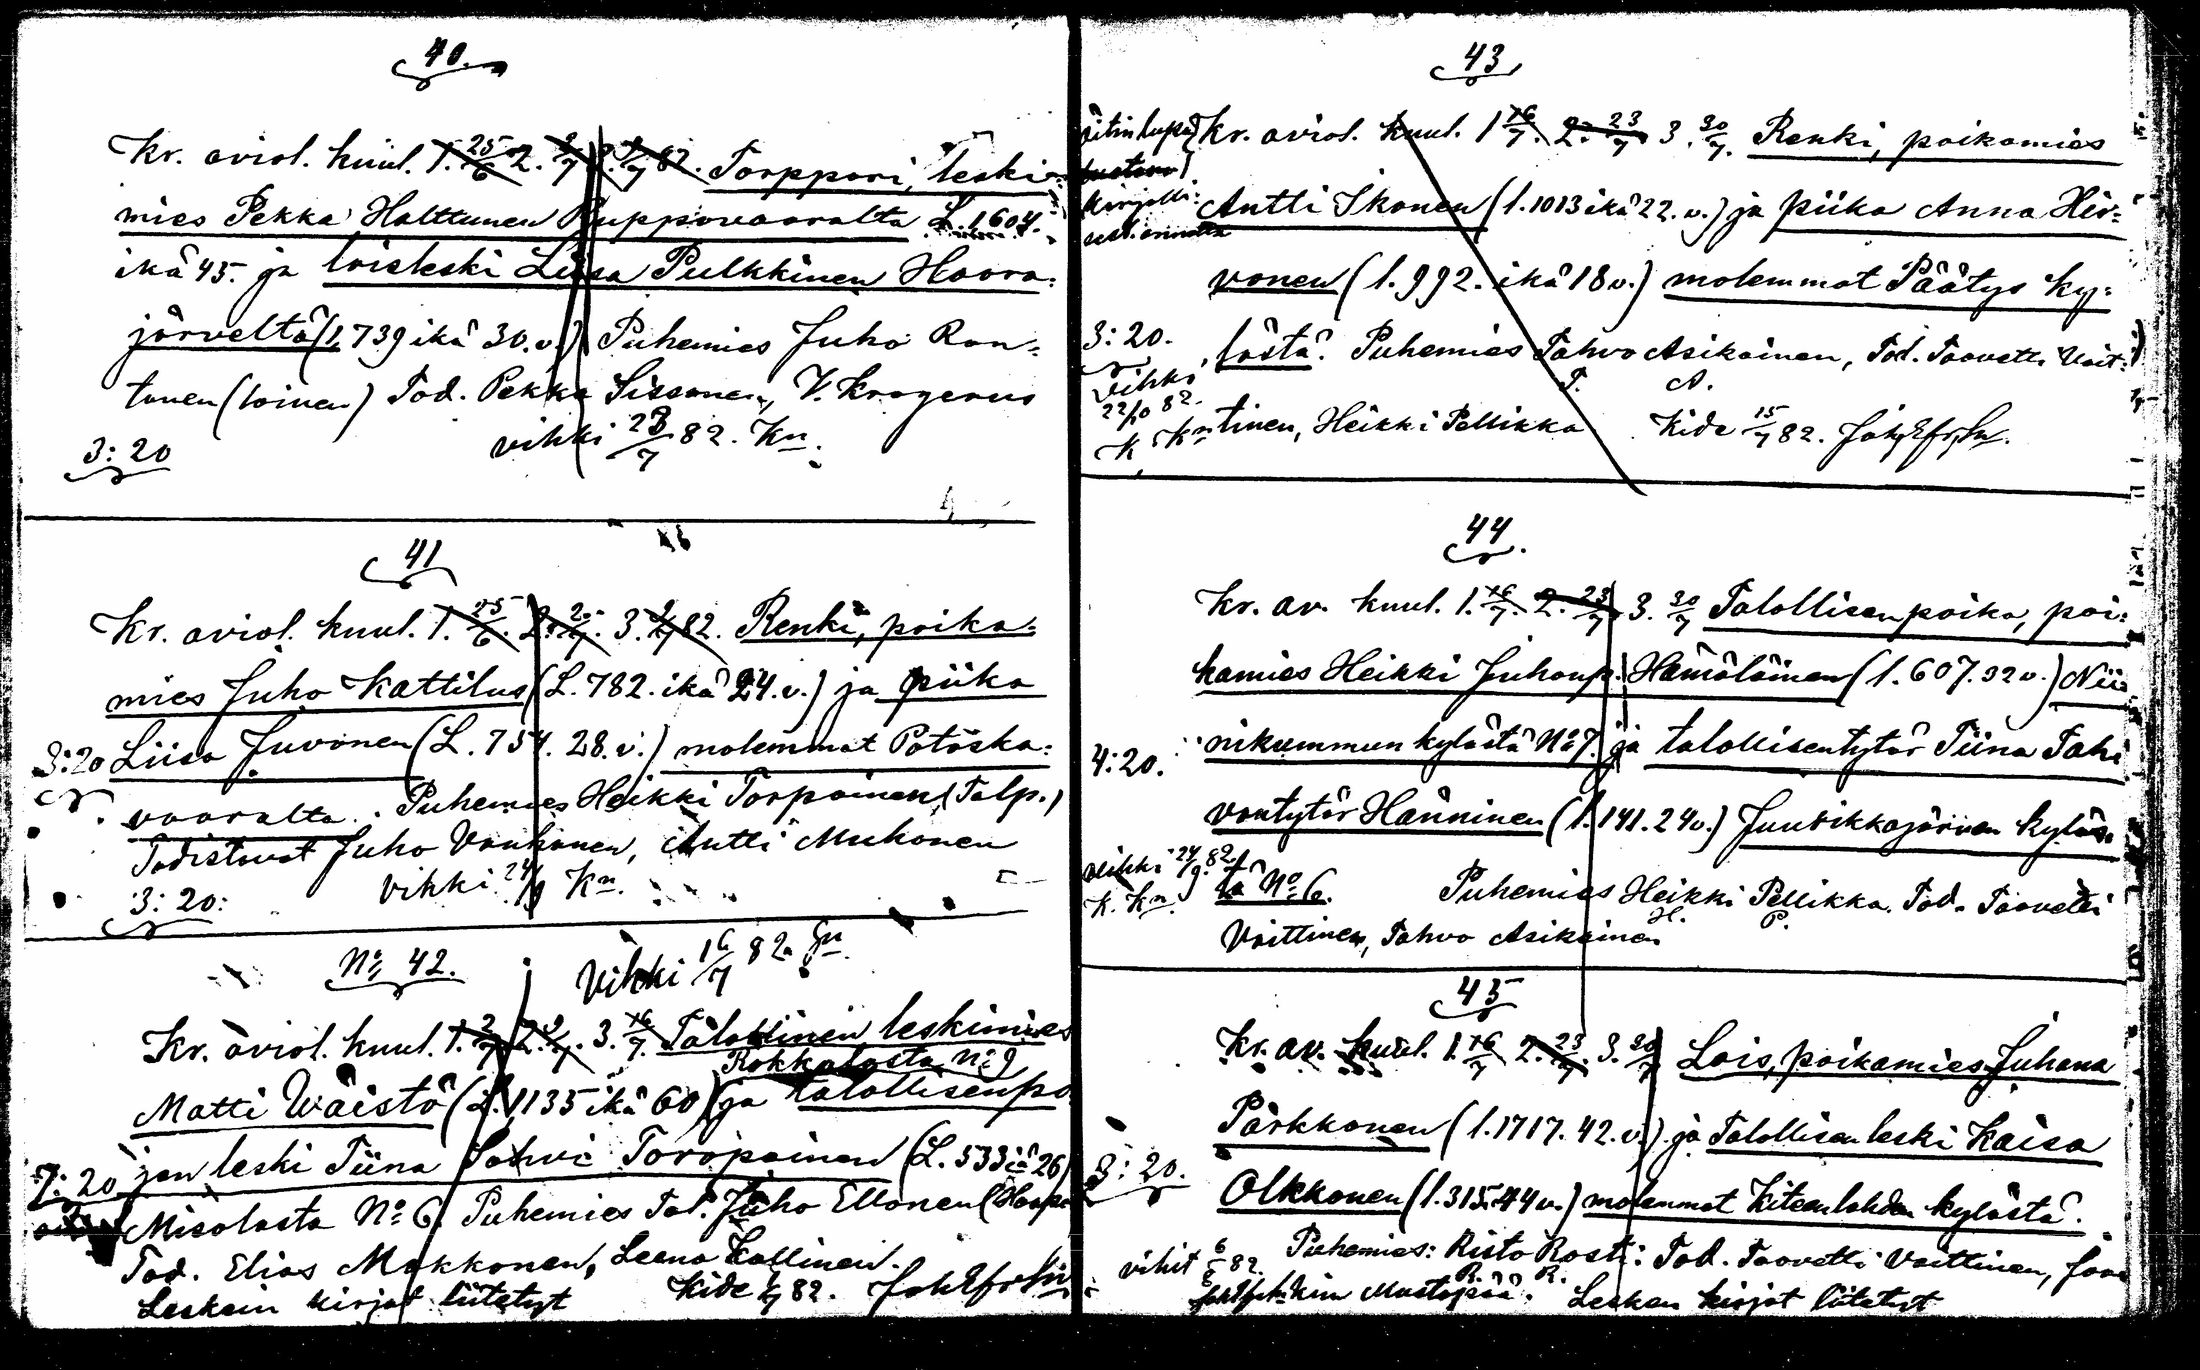 40.
Kr. aviol. kuul. 1. 25/6 2. 2/7 3. 9/7 82. Torppari, leski-
mies Pekka Halttunen Ruppovaaralta L. 1604.
ikä 45. ja loisleski Liisa Pulkkinen Haara-
järveltä (l. 739 ikä 30. v.) Puhemies Juho Ron-
tunen (loinen) Tod. Pekka Sissonen, V. Krogerus
3:20
vihki 23/7 82. Kn.
41
Kr. aviol. kuul. 1. 25/6. 2. 3. 9/7 82. Renki, poika-
mies Juho Kattilus (L. 782. ikä 24. v.) ja piika
3:20 Liisa Juvonen (L. 754. 28. v.) molemmat Potoska-
vaaralta. Puhemies Heikki Torpainen (Talp.)
Todistavat Juho Vanhanen, Antti Muhonen
3:20:
vihki 24/9 Kn.
No 42.
Vihki 16/7 82
Kr. aviol. kuul. 1. 2/7 2. 9/7. 3. 16/7. Talollinen leskimies
Rokkalasta No 9
Matti Wäistö (L. 1135 ikä 60) ja talollisenpo
7:20 jan leski Tiina Toropainen (L. 533 ikä 26)
Misolasta No 6. Puhemies Tal. Juho Ellonen
Tod. Elias Makkonen, Leena Kallinen.
Leskein kirjat liitetyt
Kide 82.
43
Kr. aviol. kuul. 1 16/7. 2. 23/7 3. 30/7. Renki, poikamies
kirjalli-
Antti Ikonen (l. 1013 ikä 22. v.) ja piika Anna Hir-
vonen (l. 992. ikä 18 v.) molemmat Päätys ky-
3:20.
lästä. Puhemies Tahvo Asikainen, Tod. Taavetti Vait-
T. A.
vihki
22/10 82.
K. Kn
tinen, Heikki Pellikka Kide 15/7 82.
44.
Kr. av. kuul. 1. 16/7. 2. 23/7 3. 30/7 Talollisenpoika, poi-
kamies Heikki Juhonp. Hämäläinen (l. 607. 32 v.) Nii-
4:20.
nikummun kylästä No 7. ja talollisentytär Tiina Tah-
vontytär Hänninen (l. 141. 24 v.) Juurikkajärven kyläs-
vihki 24/9. 82
K. Kn.
tä No 6. Puhemies Heikki Pellikka. Tod. Taavetti
H. P.
Vaittinen, Tahvo Asikainen
45
Kr. av. kuul. 1. 16/7 2. 23/7. 3. 30/7 Lois, poikamies Juhana
Pärkkonen (l. 1717. 42. v.) ja Talollisen leski Kaisa
3:20.
Olkkonen (l. 315. 44 v.) molemmat Kiteenlahden kylästä.
vihit 6/8 82.
Puhemies: Risto Rosti: Tod. Taavetti Vaittinen, Joa-
R. R.
kim Mustapää. Lesken kirjat liitetyt